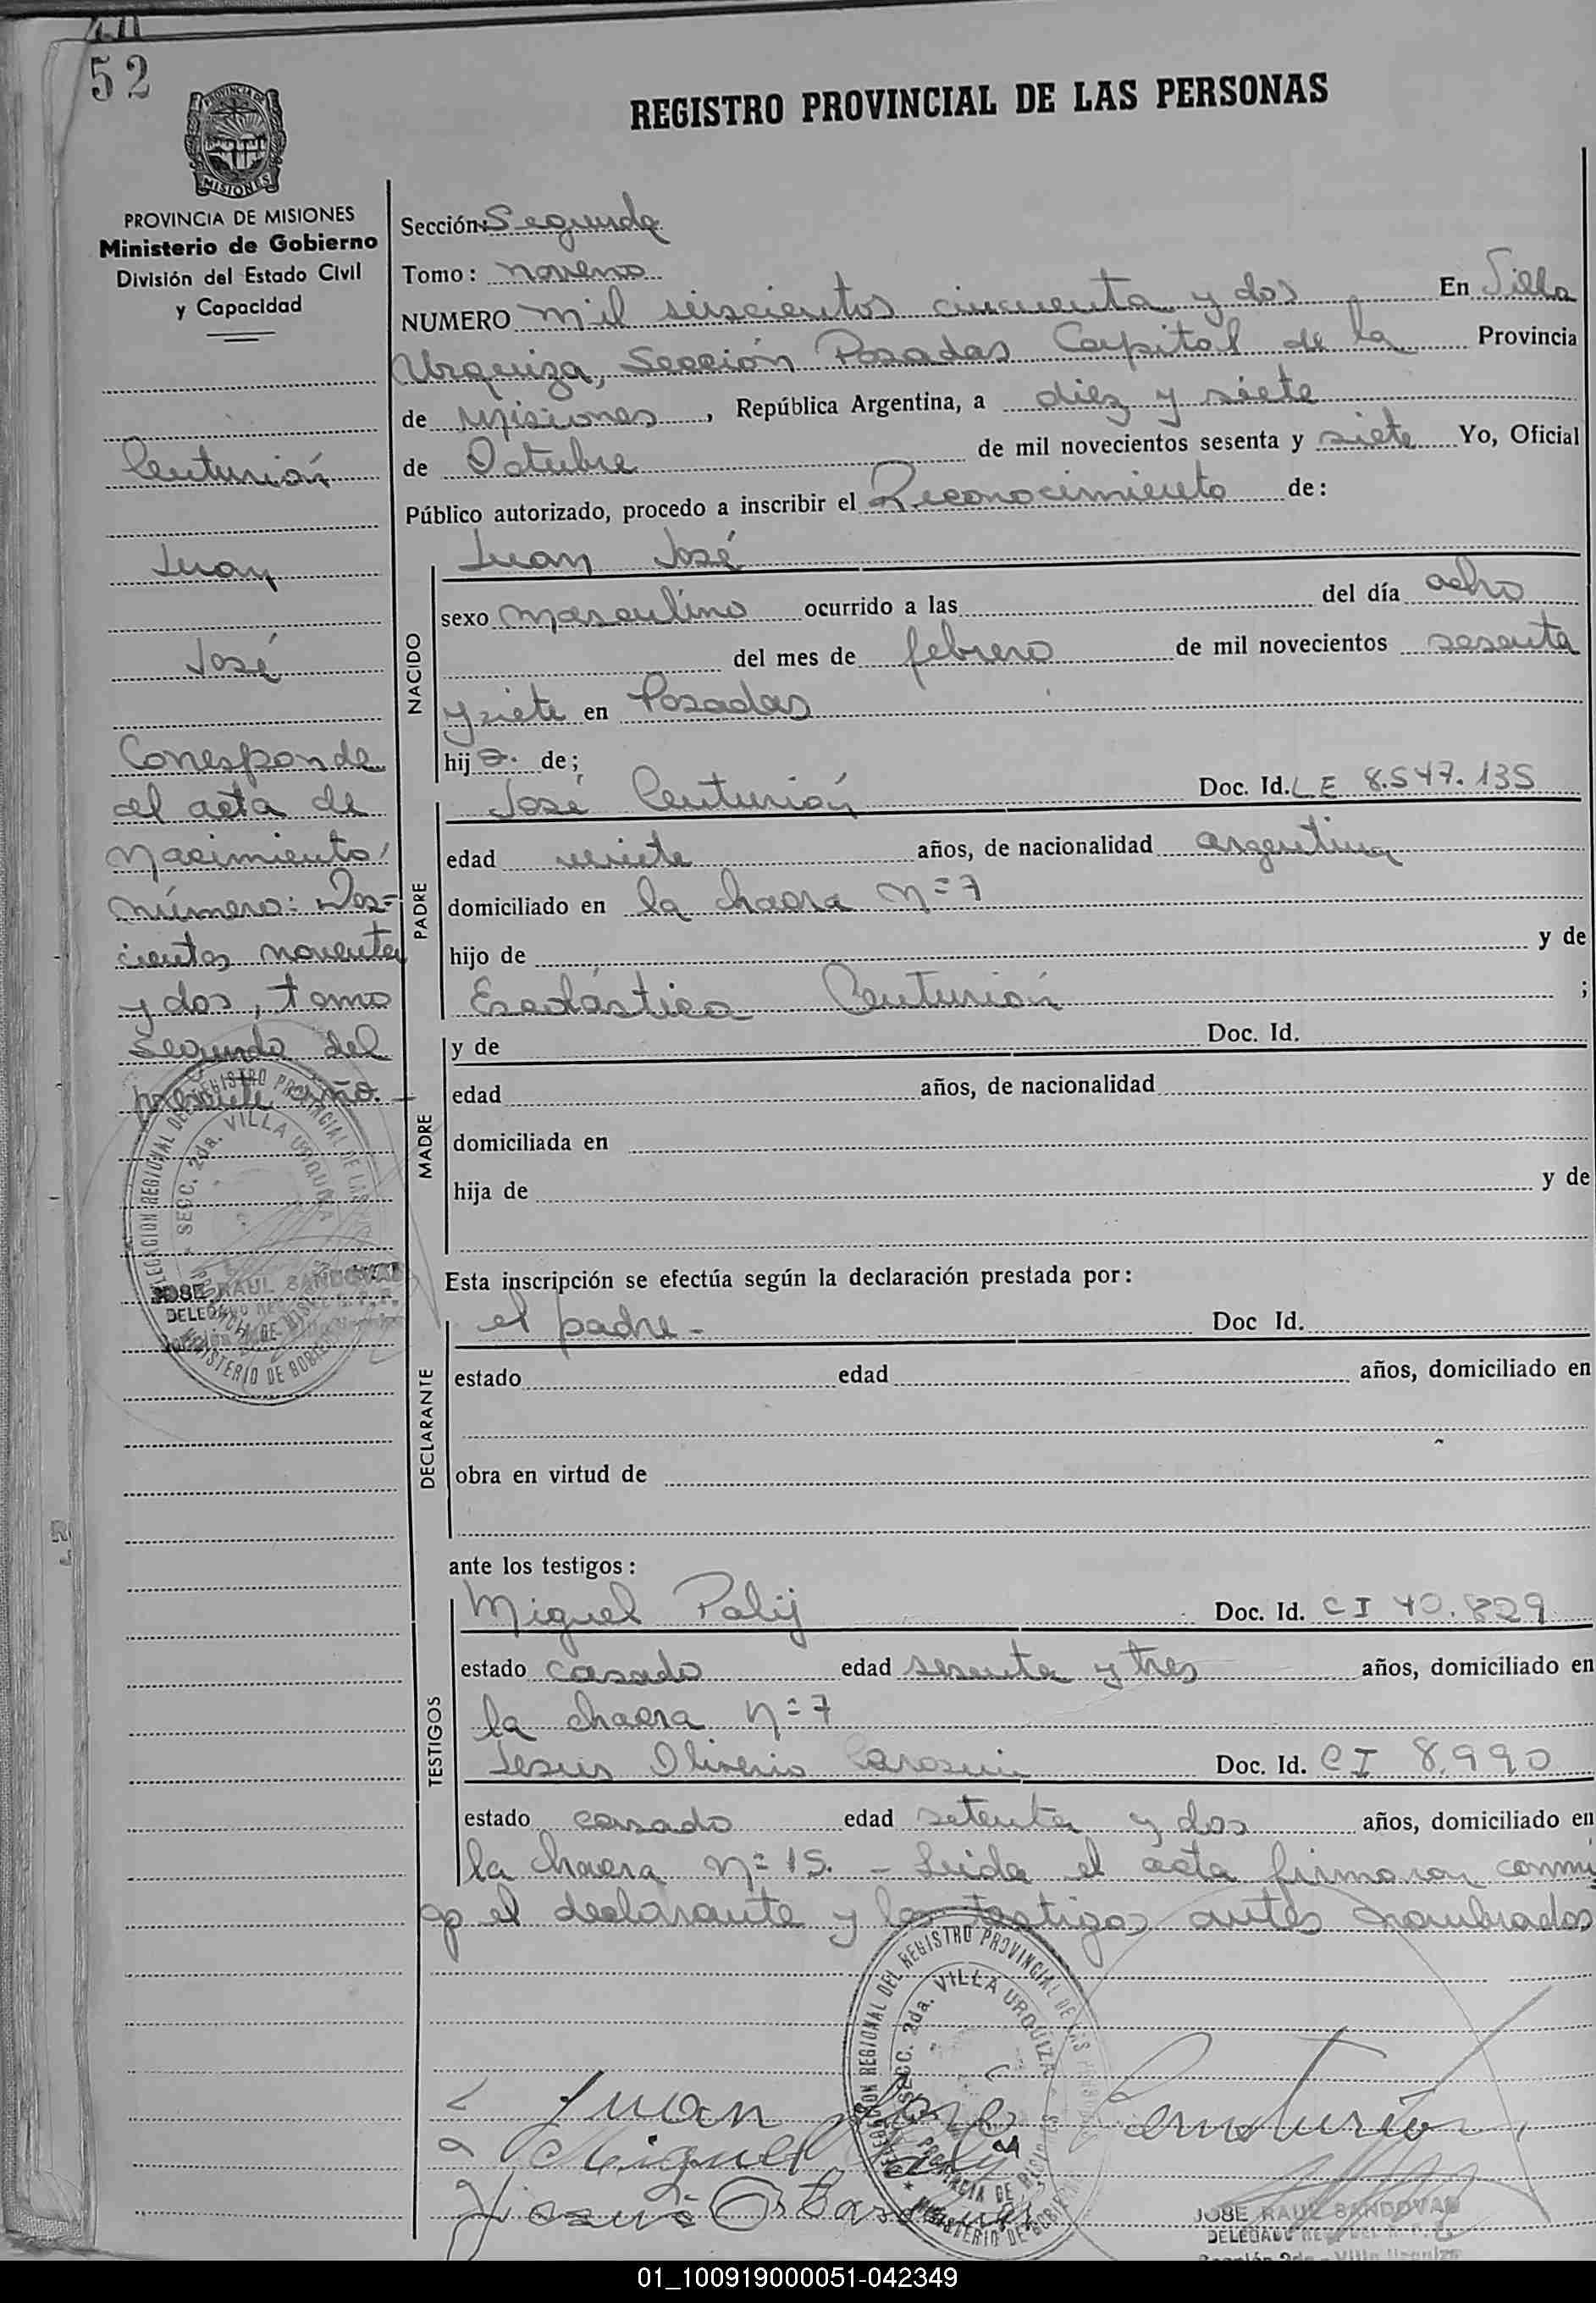 52
REGISTRO PROVINCIAL DE LAS PERSONAS
PROVINCIA DE
MISIONES
PROVINCIA DE MISIONES
Ministerio de Gobierno
División del Estado Civil
y Capacidad
Centurión
Juan
José
Corresponde
al acta de
Nacimiento,
número: Dos=
cientos noventa
y dos, tomo
segundo del
presente año. -
JOSE RAUL SANDOVAL
Sección: Segunda
Tomo: noveno
NUMERO mil seiscientos cincuenta y dos En Villa
Urquiza, Sección Posadas Capital de la Provincia
de Misiones, República Argentina, a diez y siete
de Octubre de mil novecientos sesenta y siete Yo, Oficial
Público autorizado, procedo a inscribir el Reconocimiento de:
NACIDO
Juan José
sexo masculino ocurrido a las del día ocho
del mes de febrero de mil novecientos sesenta
y siete en Posadas
hijo de;
PADRE
José Centurión Doc. Id. LE 8.547.135
edad veinte años, de nacionalidad argentina
domiciliado en la chacra Nº 7
hijo de y de
Escolástica Centurión ;
MADRE
y de Doc. Id.
edad años, de nacionalidad
domiciliada en
hija de y de
Esta inscripción se efectúa según la declaración prestada por:
DECLARANTE
el padre - Doc Id.
estado edad años, domiciliado en
obra en virtud de
ante los testigos:
TESTIGOS
Miguel Palij Doc. Id. CI 40.829
estado casado edad sesenta y tres años, domiciliado en
la chacra Nº 7
Jesús Oliverio Doc. Id. CI 8.990
estado casado edad setenta y dos años, domiciliado en
la chacra Nº 15. - Leida el acta firmaron conmi
go el declarante y los testigos antes nombrados
DELEGACION REGIONAL DEL REGISTRO PROVINCIAL DE LAS
SECC. 2da. VILLA URQUIZA
PROVINCIA DE
MINISTERIO DE GOBIERNO
Juan José Centurión
Miguel
JOSE RAUL SANDOVAL
DELEGADO
01_100919000051-042349